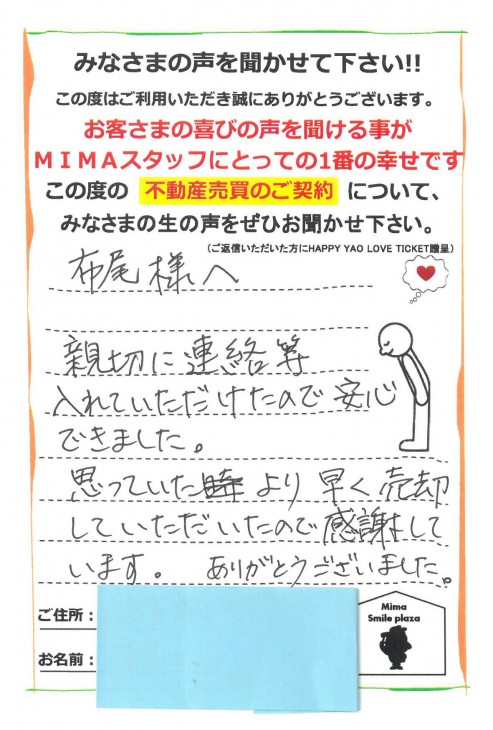 みなさまの声を聞かせて下さい!!
この度はご利用いただき誠にありがとうございます。
お客さまの喜びの声を聞ける事が
MIMAスタッフにとっての1番の幸せです
この度の 不動産売買のご契約 について、
みなさまの生の声をぜひお聞かせ下さい。
(ご返信いただいた方にHAPPY YAO LOVE TICKET贈呈)
布尾様へ
親切に連絡等
入れていただけたので安心
できました。
思っていた時より早く売却
していただいたので感謝して
います。 ありがとうございました。
ご住所:
お名前:
Mima
Smile plaza